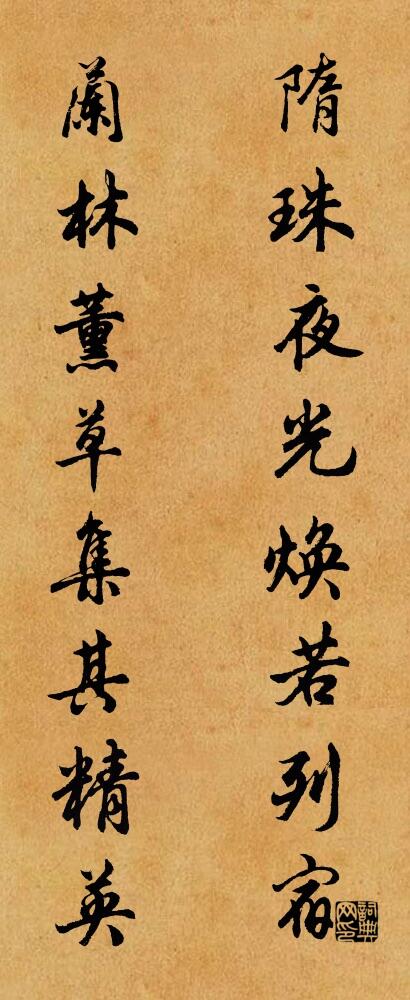 隋珠夜光煥若列宿
蘭林薫草集其精英
詞典网印